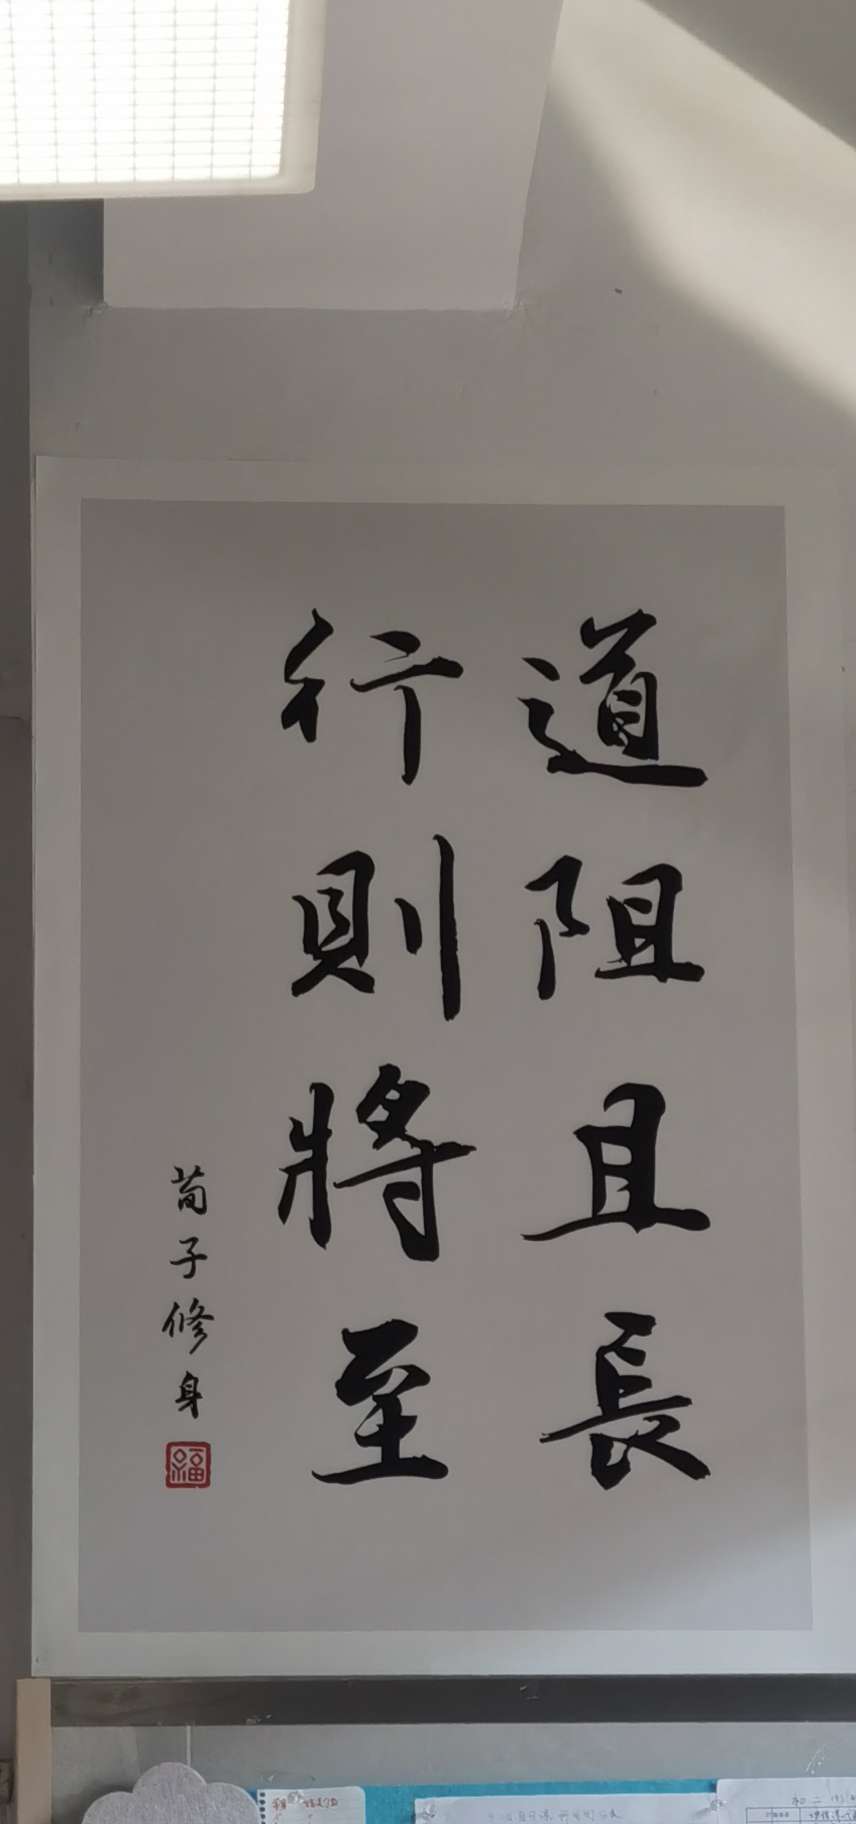 道阻且長
行則將至
荀子修身
福
初二